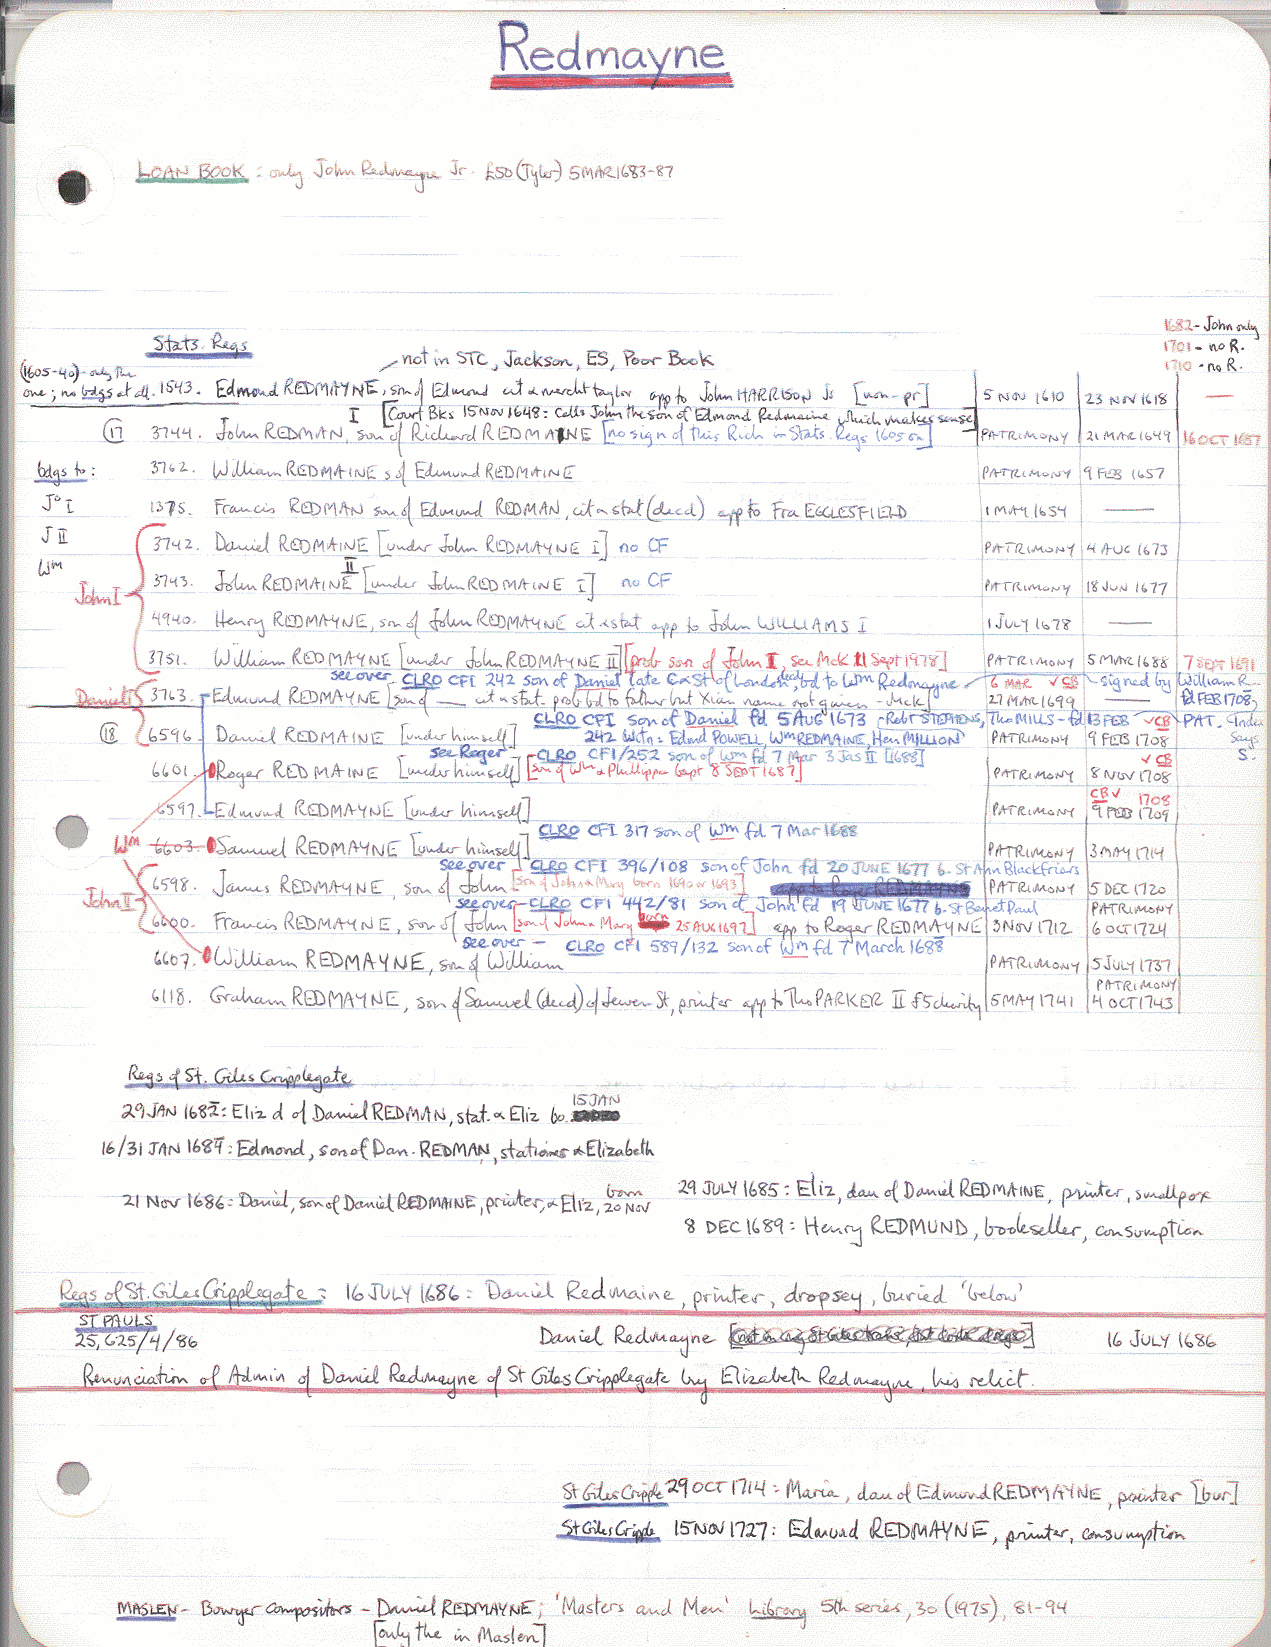 Redmayne
LOAN BOOK : only John Redmayne Jr. £50 (Tyler) 5 MAR 1683-87
1682 - John only
1701 - no R.
1710 - no R.
Stats. Regs
not in STC, Jackson, ES, Poor Book
(1605-40) - only the
one; no bdgs at all. 1543. Edmond REDMAYNE, son of Edmund cit & mercht taylor app to John HARRISON Js [non-pr] 5 NOV 1610 23 NOV 1618 —
I [Court Bks 15 NOV 1648: calls John the son of Edmond Redmaine which makes sense]
17 3744. John REDMAN, son of Richard REDMAYNE [no sign of this Rich in Stats. Regs 1605 on] PATRIMONY 21 MAR 1649 16 OCT 1657
bdgs to : 3762. William REDMAINE s of Edmund REDMAINE PATRIMONY 9 FEB 1657
Jo I 1375. Francis REDMAN son of Edmund REDMAN, cit & stat (decd) app to Fra EGGLESFIELD 1 MAY 1654 —
J II 3742. Daniel REDMAINE [under John REDMAYNE I] no CF PATRIMONY 4 AUG 1673
Wm
John I 3743. John REDMAINE II [under John REDMAINE I] no CF PATRIMONY 18 JUN 1677
4940. Henry REDMAYNE, son of John REDMAYNE cit & stat app to John WILLIAMS I 1 JULY 1678 —
3751. William REDMAYNE [under John REDMAYNE II] [prob son of John I, see McK 11 Sept 1978] PATRIMONY 5 MAR 1688 7 SEPT 1691
see over - CLRO CFI 242 son of Daniel late C & St of London decd, bd to Wm Redmayne - 6 MAR √ CB - signed by William R.
Daniel I 3763. Edmund REDMAYNE [son of — cit & stat. prob bd to father but Xian name not given - McK] 27 MAR 1699 — fd FEB 1708,
CLRO CFI son of Daniel fd 5 AUG 1673 - Robt STEPHENS, Tho MILLS - fd 13 FEB √ CB PAT. Index
18 6596. Daniel REDMAYNE [under himself] 242 Witn: Edmd POWELL, Wm REDMAINE, Hen MILLION PATRIMONY 9 FEB 1708 says
see Roger - CLRO CFI/252 son of Wm fd 7 Mar 3 Jas II [1688] √ CB S.
6601. Roger REDMAINE [under himself] [son of Wm & Phillippa bapt 8 SEPT 1687] PATRIMONY 8 NOV 1708
CB √ 1708
6597. Edmund REDMAYNE [under himself] PATRIMONY 9 FEB 1709
CLRO CFI 317 son of Wm fd 7 Mar 1688
Wm 6603. Samuel REDMAYNE [under himself] PATRIMONY 3 MAY 1714
see over - CLRO CFI 396/108 son of John fd 20 JUNE 1677 b. St Ann Blackfriars
6598. James REDMAYNE, son of John [son of John & Mary born 1690 or 1693] app to Roger REDMAYNE PATRIMONY 5 DEC 1720
John II see over - CLRO CFI 442/81 son of John fd 19 JUNE 1677 b. St Benet Paul PATRIMONY
6600. Francis REDMAYNE, son of John [son of John & Mary born 25 AUG 1697] app to Roger REDMAYNE 3 NOV 1712 6 OCT 1724
see over - CLRO CFI 589/132 son of Wm fd 7 March 1688
6607. William REDMAYNE, son of William PATRIMONY 5 JULY 1737
PATRIMONY
6118. Graham REDMAYNE, son of Samuel (decd) of Jewen St, printer app to Tho PARKER II £5 charity 5 MAY 1741 4 OCT 1743
Regs of St. Giles Cripplegate
29 JAN 1682: Eliz d of Daniel REDMAN, stat. & Eliz bo. 15 JAN
16/31 JAN 1684: Edmond, son of Dan. REDMAN, stationer & Elizabeth
21 Nov 1686: Daniel, son of Daniel REDMAINE, printer, & Eliz, born 20 Nov
29 JULY 1685: Eliz, dau of Daniel REDMAINE, printer, smallpox
8 DEC 1689: Henry REDMUND, bookseller, consumption
Regs of St. Giles Cripplegate : 16 JULY 1686: Daniel Redmaine, printer, dropsey, buried 'below'
ST PAULS
25,625/4/86 Daniel Redmayne 16 JULY 1686
Renunciation of Admin of Daniel Redmayne of St Giles Cripplegate by Elizabeth Redmayne, his relict.
St Giles Cripple 29 OCT 1714: Maria, dau of Edmund REDMAYNE, printer [bur]
St Giles Cripple 15 NOV 1727: Edmund REDMAYNE, printer, consumption
MASLEN - Bowyer Compositors - Daniel REDMAYNE; 'Masters and Men' Library 5th series, 30 (1975), 81-94
[only the in Maslen]